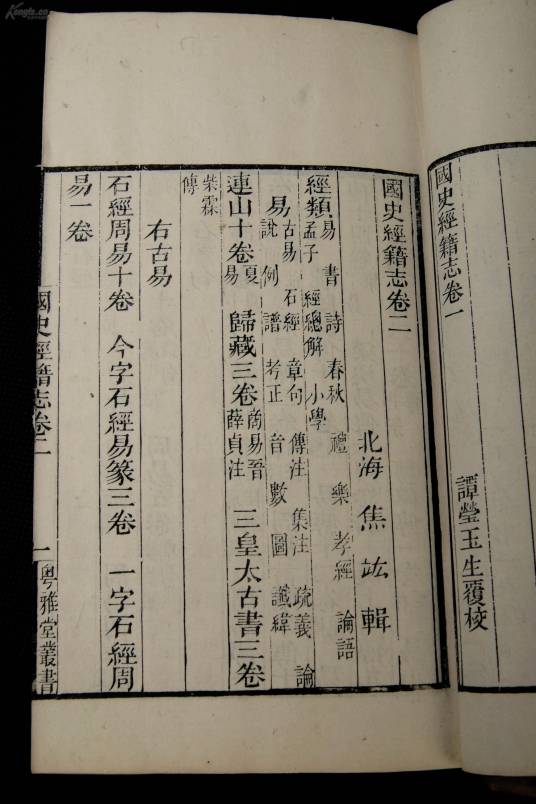 國史經籍志卷一
譚瑩玉生覆校
國史經籍志卷二
北海焦竑輯
經類 易 書 詩 春秋 禮 樂 孝經 論語
孟子 經總解 小學
易 古易 石經 章句 傳注 集注 疏義 論
說 例 譜 考正 音 數 圖 讖緯
連山十卷 夏易 歸藏三卷 商易晉薛貞注 三皇太古書三卷
柴霖傳
右古易
石經周易十卷 今字石經易篆三卷 一字石經周
易一卷
國史經籍志卷二 一 粵雅堂叢書
Kongfz.cn